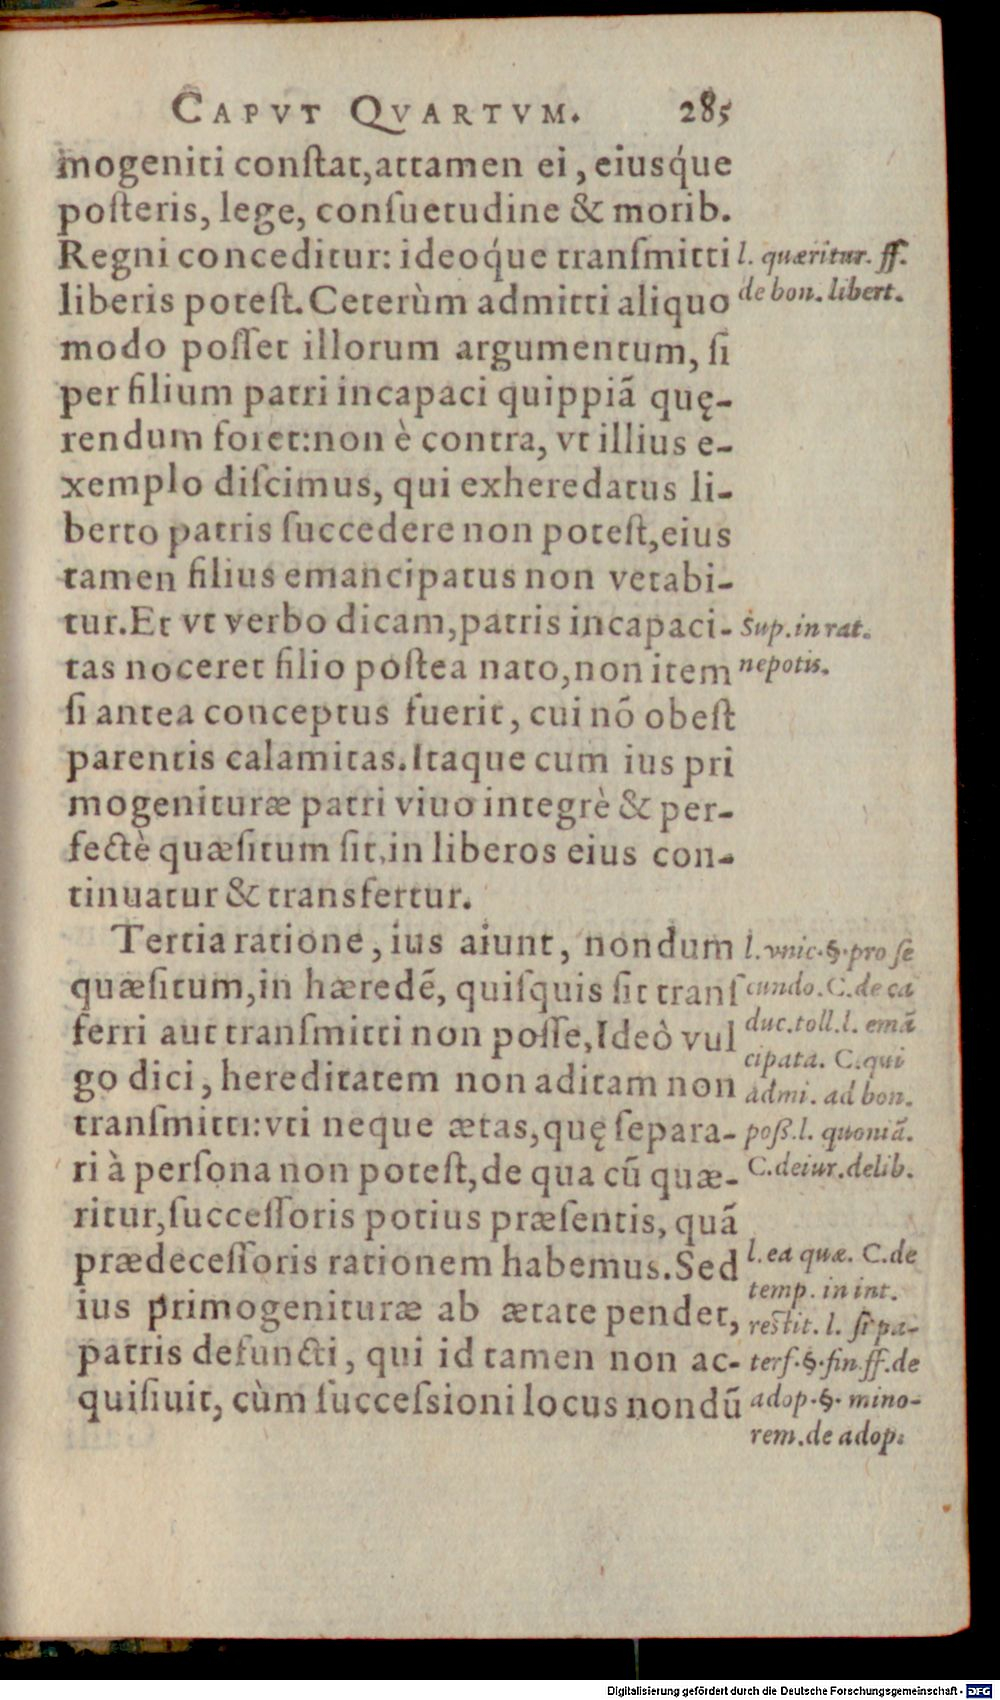 CAPVT QVARTVM. 285
mogeniti conſtat, attamen ei, eiusq́ue
poſteris, lege, conſuetudine & morib.
Regni conceditur: ideoq́ue tranſmitti
liberis poteſt. Ceterùm admitti aliquo
modo poſſet illorum argumentum, ſi
per filium patri incapaci quippiã quę-
rendum foret: non è contra, vt illius e-
xemplo diſcimus, qui exheredatus li-
berto patris ſuccedere non poteſt, eius
tamen filius emancipatus non vetabi-
tur. Et vt verbo dicam, patris incapaci-
tas noceret filio poſtea nato, non item
ſi antea conceptus fuerit, cui nõ obeſt
parentis calamitas. Itaque cum ius pri
mogenituræ patri viuo integrè & per-
fectè quæſitum ſit, in liberos eius con-
tinuatur & transfertur.
Tertia ratione, ius aiunt, nondum
quæſitum, in hæredẽ, quiſquis ſit tranſ
ferri aut tranſmitti non poſſe, Ideò vul
go dici, hereditatem non aditam non
tranſmitti: vti neque ætas, quę ſepara-
ri à perſona non poteſt, de qua cũ quæ-
ritur, ſucceſſoris potius præſentis, quã
prædeceſſoris rationem habemus. Sed
ius primogenituræ ab ætate pendet,
patris defuncti, qui id tamen non ac-
quiſiuit, cùm ſucceſsioni locus nondũ
l. quæritur. ff.
de bon. libert.
Sup. in rat.
nepotis.
l. vnic. §. pro ſe
cundo. C. de ca
duc. toll. l. emã
cipata. C. qui
admi. ad bon.
poß. l. quoniã.
C. de iur. delib.
l. ea quæ. C. de
temp. in int.
reſtit. l. ſi pa-
terf. §. fin. ff. de
adop. §. mino-
rem. de adop.
Digitalisierung gefördert durch die Deutsche Forschungsgemeinschaft - DFG